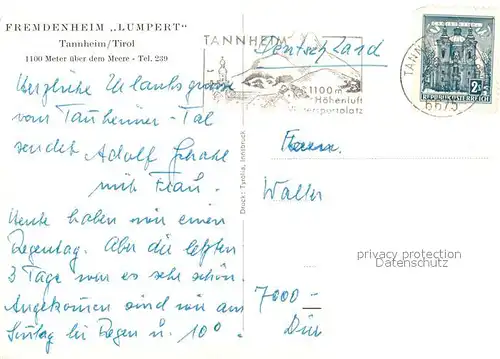 FREMDENHEIM „LUMPERT"
Tannheim/Tirol
1100 Meter über dem Meere - Tel. 239
Herzliche Urlaubsgrüsse
vom Tannheimer-Tal
sendet Adolf
mit Frau.
Heute haben wir einen
Regentag. Aber die letzten
3 Tage war es sehr schön.
Angekommen sind wir am
Sontag bei Regen u. 10°.
Druck: Tyrolia, Innsbruck
TANNHEIM
1100 m
Höhenluft
Wintersportplatz
Deutschland
TANNHEIM
6675
2
REPUBLIK ÖSTERREICH
Walter
privacy protection
Datenschutz
7000 -